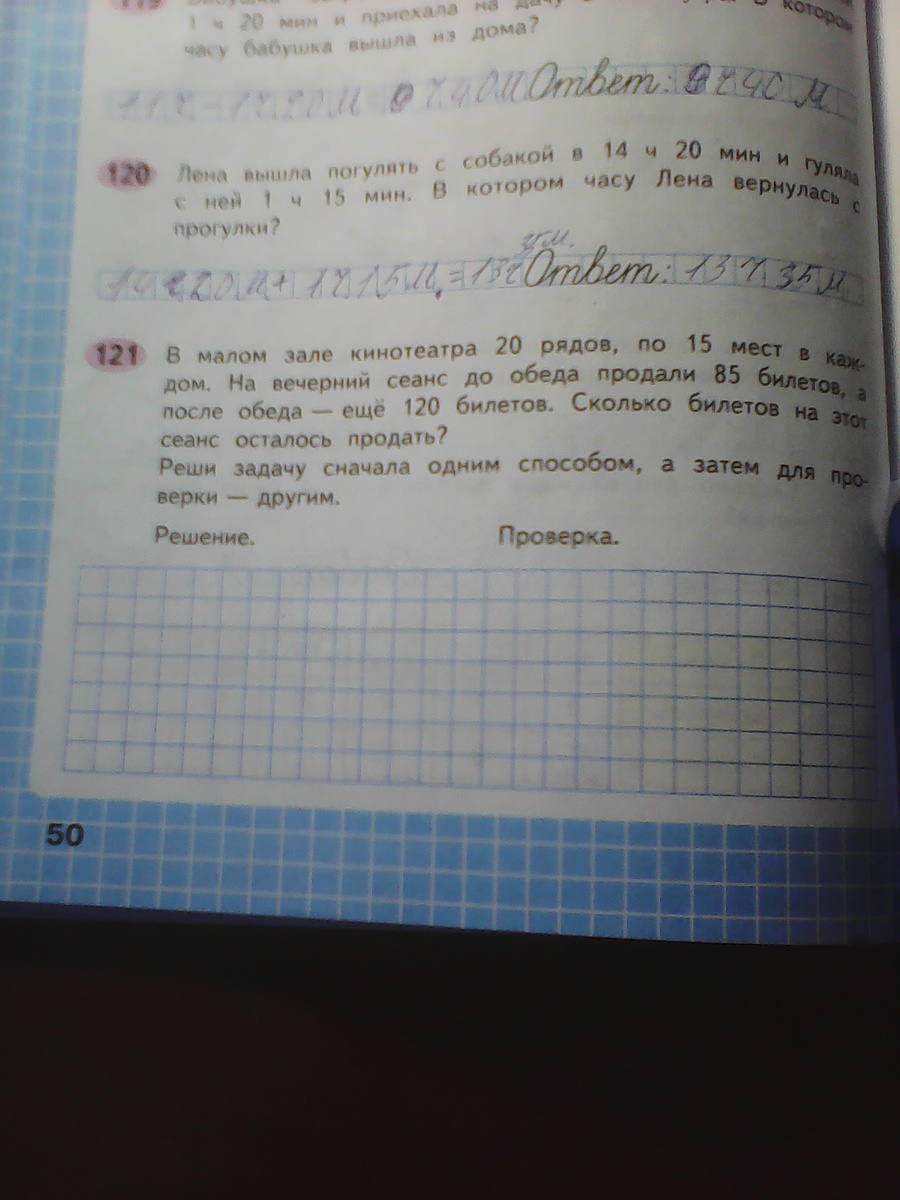 119
1 ч 20 мин и приехала на дачу
В котором
часу бабушка вышла из дома?
11ч - 1ч20м = 9ч40м Ответ: 9ч40 м
120 Лена вышла погулять с собакой в 14 ч 20 мин и гуляла
с ней 1 ч 15 мин. В котором часу Лена вернулась с
прогулки?
14ч20м + 1ч15м = 13ч Ответ: 13ч 35м
121 В малом зале кинотеатра 20 рядов, по 15 мест в каж-
дом. На вечерний сеанс до обеда продали 85 билетов, а
после обеда — ещё 120 билетов. Сколько билетов на этот
сеанс осталось продать?
Реши задачу сначала одним способом, а затем для про-
верки — другим.
Решение. Проверка.
50